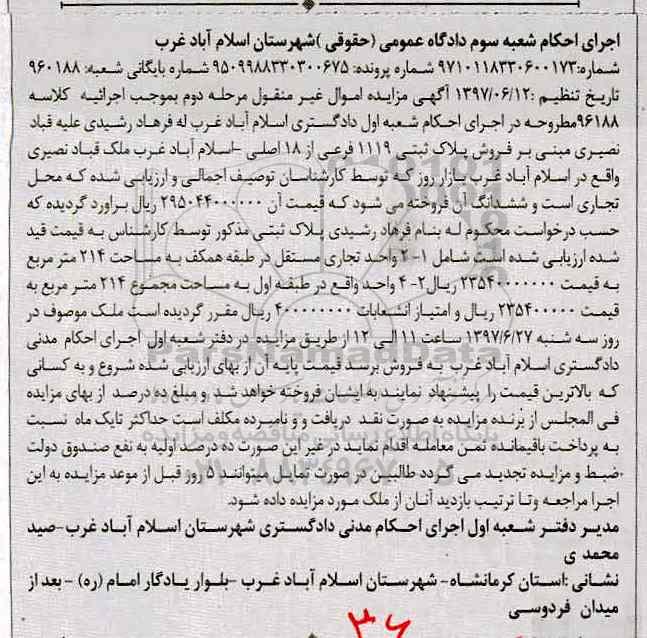 اجرای احکام شعبه سوم دادگاه عمومی (حقوقی )شهرستان اسلام آباد غرب
شماره:۹۷۱۰۱۱۸۳۳۰۶۰۰۱۷۳ شماره پرونده: ۹۵۰۹۹۸۸۳۳۰۳۰۰۶۷۵ شماره بایگانی شعبه: ۹۶۰۱۸۸
تاریخ تنظیم :۱۳۹۷/۰۶/۱۲ آگهی مزایده اموال غیر منقول مرحله دوم بموجب اجرائیه کلاسه
۹۶۱۸۸مطروحه در اجرای احکام شعبه اول دادگستری اسلام آباد غرب له فرهاد رشیدی علیه قباد
نصیری مبنی بر فروش پلاک ثبتی ۱۱۱۹ فرعی از ۱۸ اصلی -اسلام آباد غرب ملک قباد نصیری
واقع در اسلام آباد غرب بازار روز که توسط کارشناسان توصیف اجمالی و ارزیابی شده که محل
تجاری است و ششدانگ آن فروخته می شود که قیمت آن ۲۹۵۰۴۴۰۰۰۰۰۰ ریال براورد گردیده که
حسب درخواست محکوم له بنام فرهاد رشیدی پلاک ثبتی مذکور توسط کارشناس به قیمت قید
شده ارزیابی شده است شامل ۱- ۲ واحد تجاری مستقل در طبقه همکف به مساحت ۲۱۴ متر مربع
به قیمت ۲۳۵۴۰۰۰۰۰۰۰ ریال۲- ۴ واحد واقع در طبقه اول به مساحت مجموع ۲۱۴ متر مربع به
قیمت ۲۳۵۴۰۰۰۰۰ ریال و امتیاز انشعابات ۴۰۰۰۰۰۰۰۰ ریال مقرر گردیده است ملک موصوف در
روز سه شنبه ۱۳۹۷/۶/۲۷ ساعت ۱۱ الی ۱۲ از طریق مزایده در دفتر شعبه اول اجرای احکام مدنی
دادگستری اسلام آباد غرب به فروش برسد قیمت پایه آن از بهای ارزیابی شده شروع و به کسانی
که بالاترین قیمت را پیشنهاد نمایند به ایشان فروخته خواهد شد و مبلغ ده درصد از بهای مزایده
فی المجلس از برنده مزایده به صورت نقد دریافت و و نامبرده مکلف است حداکثر تایک ماه نسبت
به پرداخت باقیمانده ثمن معامله اقدام نماید در غیر این صورت ده درصد اولیه به نفع صندوق دولت
ضبط و مزایده تجدید می گردد طالبین در صورت تمایل میتوانند ۵ روز قبل از موعد مزایده به این
اجرا مراجعه وتا ترتیب بازدید آنان از ملک مورد مزایده داده شود.
مدیر دفتر شعبه اول اجرای احکام مدنی دادگستری شهرستان اسلام آباد غرب-صید
محمد ی
نشانی :استان کرمانشاه- شهرستان اسلام آباد غرب -بلوار یادگار امام (ره) -بعد از
میدان فردوسی
۳۶